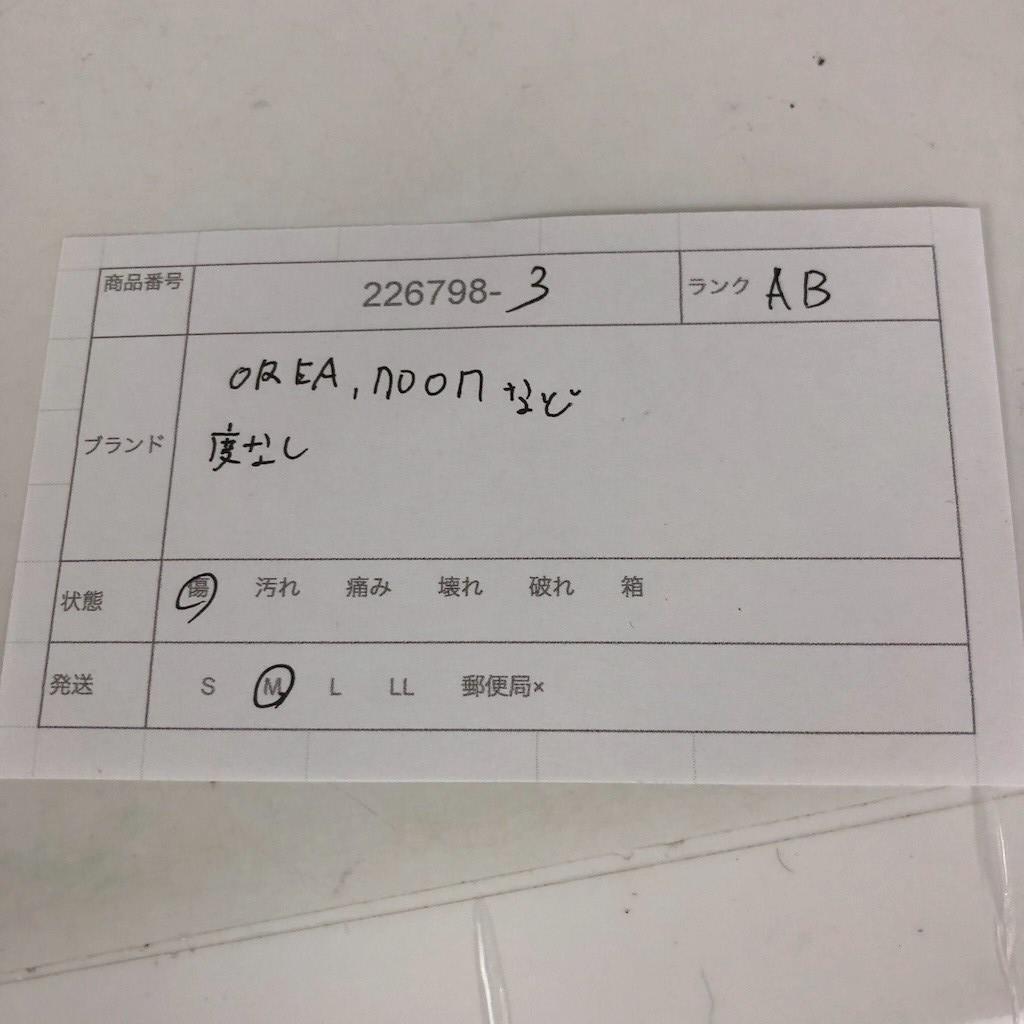 商品番号 226798-3 ランク AB
OREA, NOON など
ブランド 度なし
状態 傷 汚れ 痛み 壊れ 破れ 箱
発送 S M L LL 郵便局×